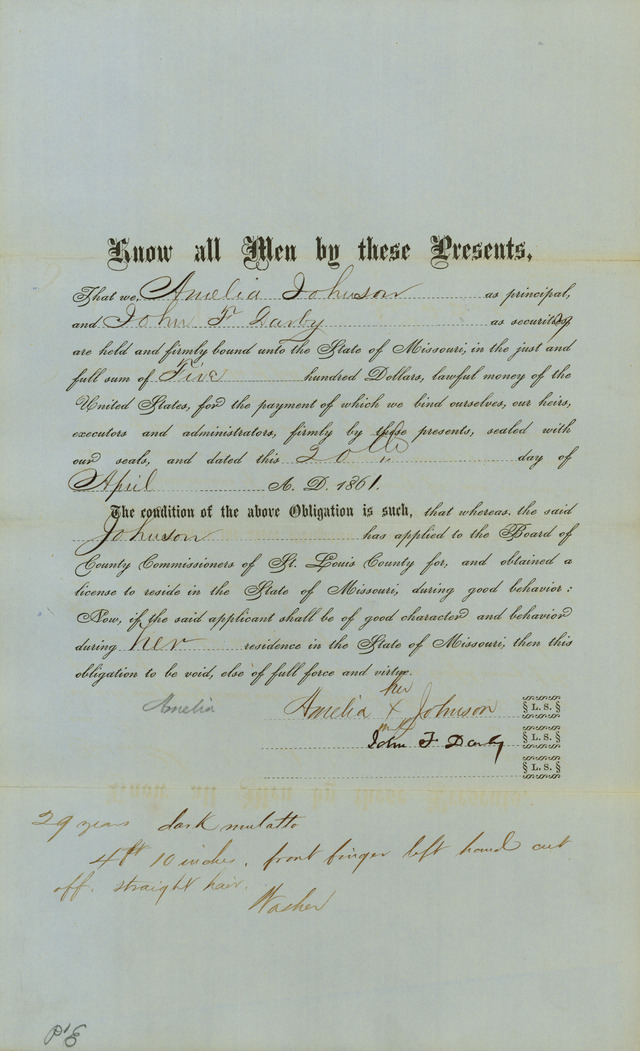 Know all Men by these Presents,
That we, Amelia Johnson as principal,
and John F Darby as securities,
are held and firmly bound unto the State of Missouri, in the just and
full sum of Five hundred Dollars, lawful money of the
United States, for the payment of which we bind ourselves, our heirs,
executors and administrators, firmly by these presents, sealed with
our seals, and dated this 20th day of
April A. D. 1861.
The condition of the above Obligation is such, that whereas, the said
Johnson has applied to the Board of
County Commissioners of St. Louis County for, and obtained a
license to reside in the State of Missouri, during good behavior:
Now, if the said applicant shall be of good character and behavior
during her residence in the State of Missouri, then this
obligation to be void, else of full force and virtue.
her
Amelia Amelia X Johnson § L. S. §
John F. Darby § L. S. §
§ L. S. §
29 years dark mulatto
4 ft 10 inches, front finger left hand cut
off. straight hair.
Washer